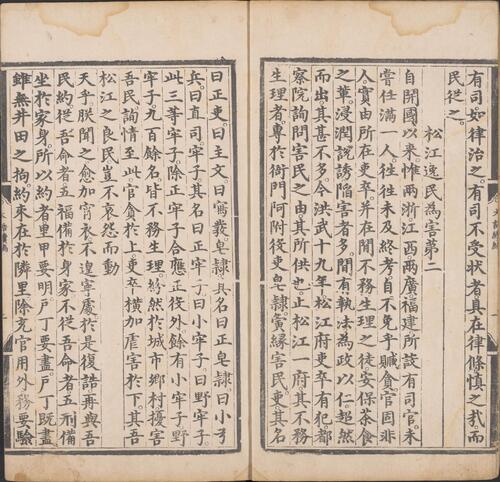 有司如律治之有司不受狀者具在律條慎之哉而
民從之
松江逸民為害第二
自開國以來惟兩浙江西兩廣福建所設有司官未
嘗任滿一人往往未及終考自不免乎贓貪官固非
人實由所在吏卒並在閒不務生理之徒安保茶食
之輩浸潤說誘陷害者多間有執法為政以仁超然
而出其甚不多今洪武十九年松江府吏卒有犯都
察院詢問害民之由其所供也止松江一府其不務
生理者專於衙門阿附役吏皂隸夤緣害民吏其名
曰正吏曰主文曰寫發皂隸其名曰正皂隸曰小弓
兵曰直司牢子其名曰正牢子曰小牢子曰野牢子
此三等牢子除正牢子合應正役外餘有小牢子野
牢子九百餘名皆不務生理紛然於城市鄉村擾害
吾民詢情至此官貪於上吏卒橫加虐害於下其吾
松江之良民豈不哀怨而動
天乎朕聞之愈加宵衣不遑寧處於是復誥再與吾
民約從吾命者五福備於身家不從吾命者五刑備
坐於家身所以約者里甲要明戶丁要盡戶丁既盡
雖無井田之拘約束在於隣里除充官用外務要驗